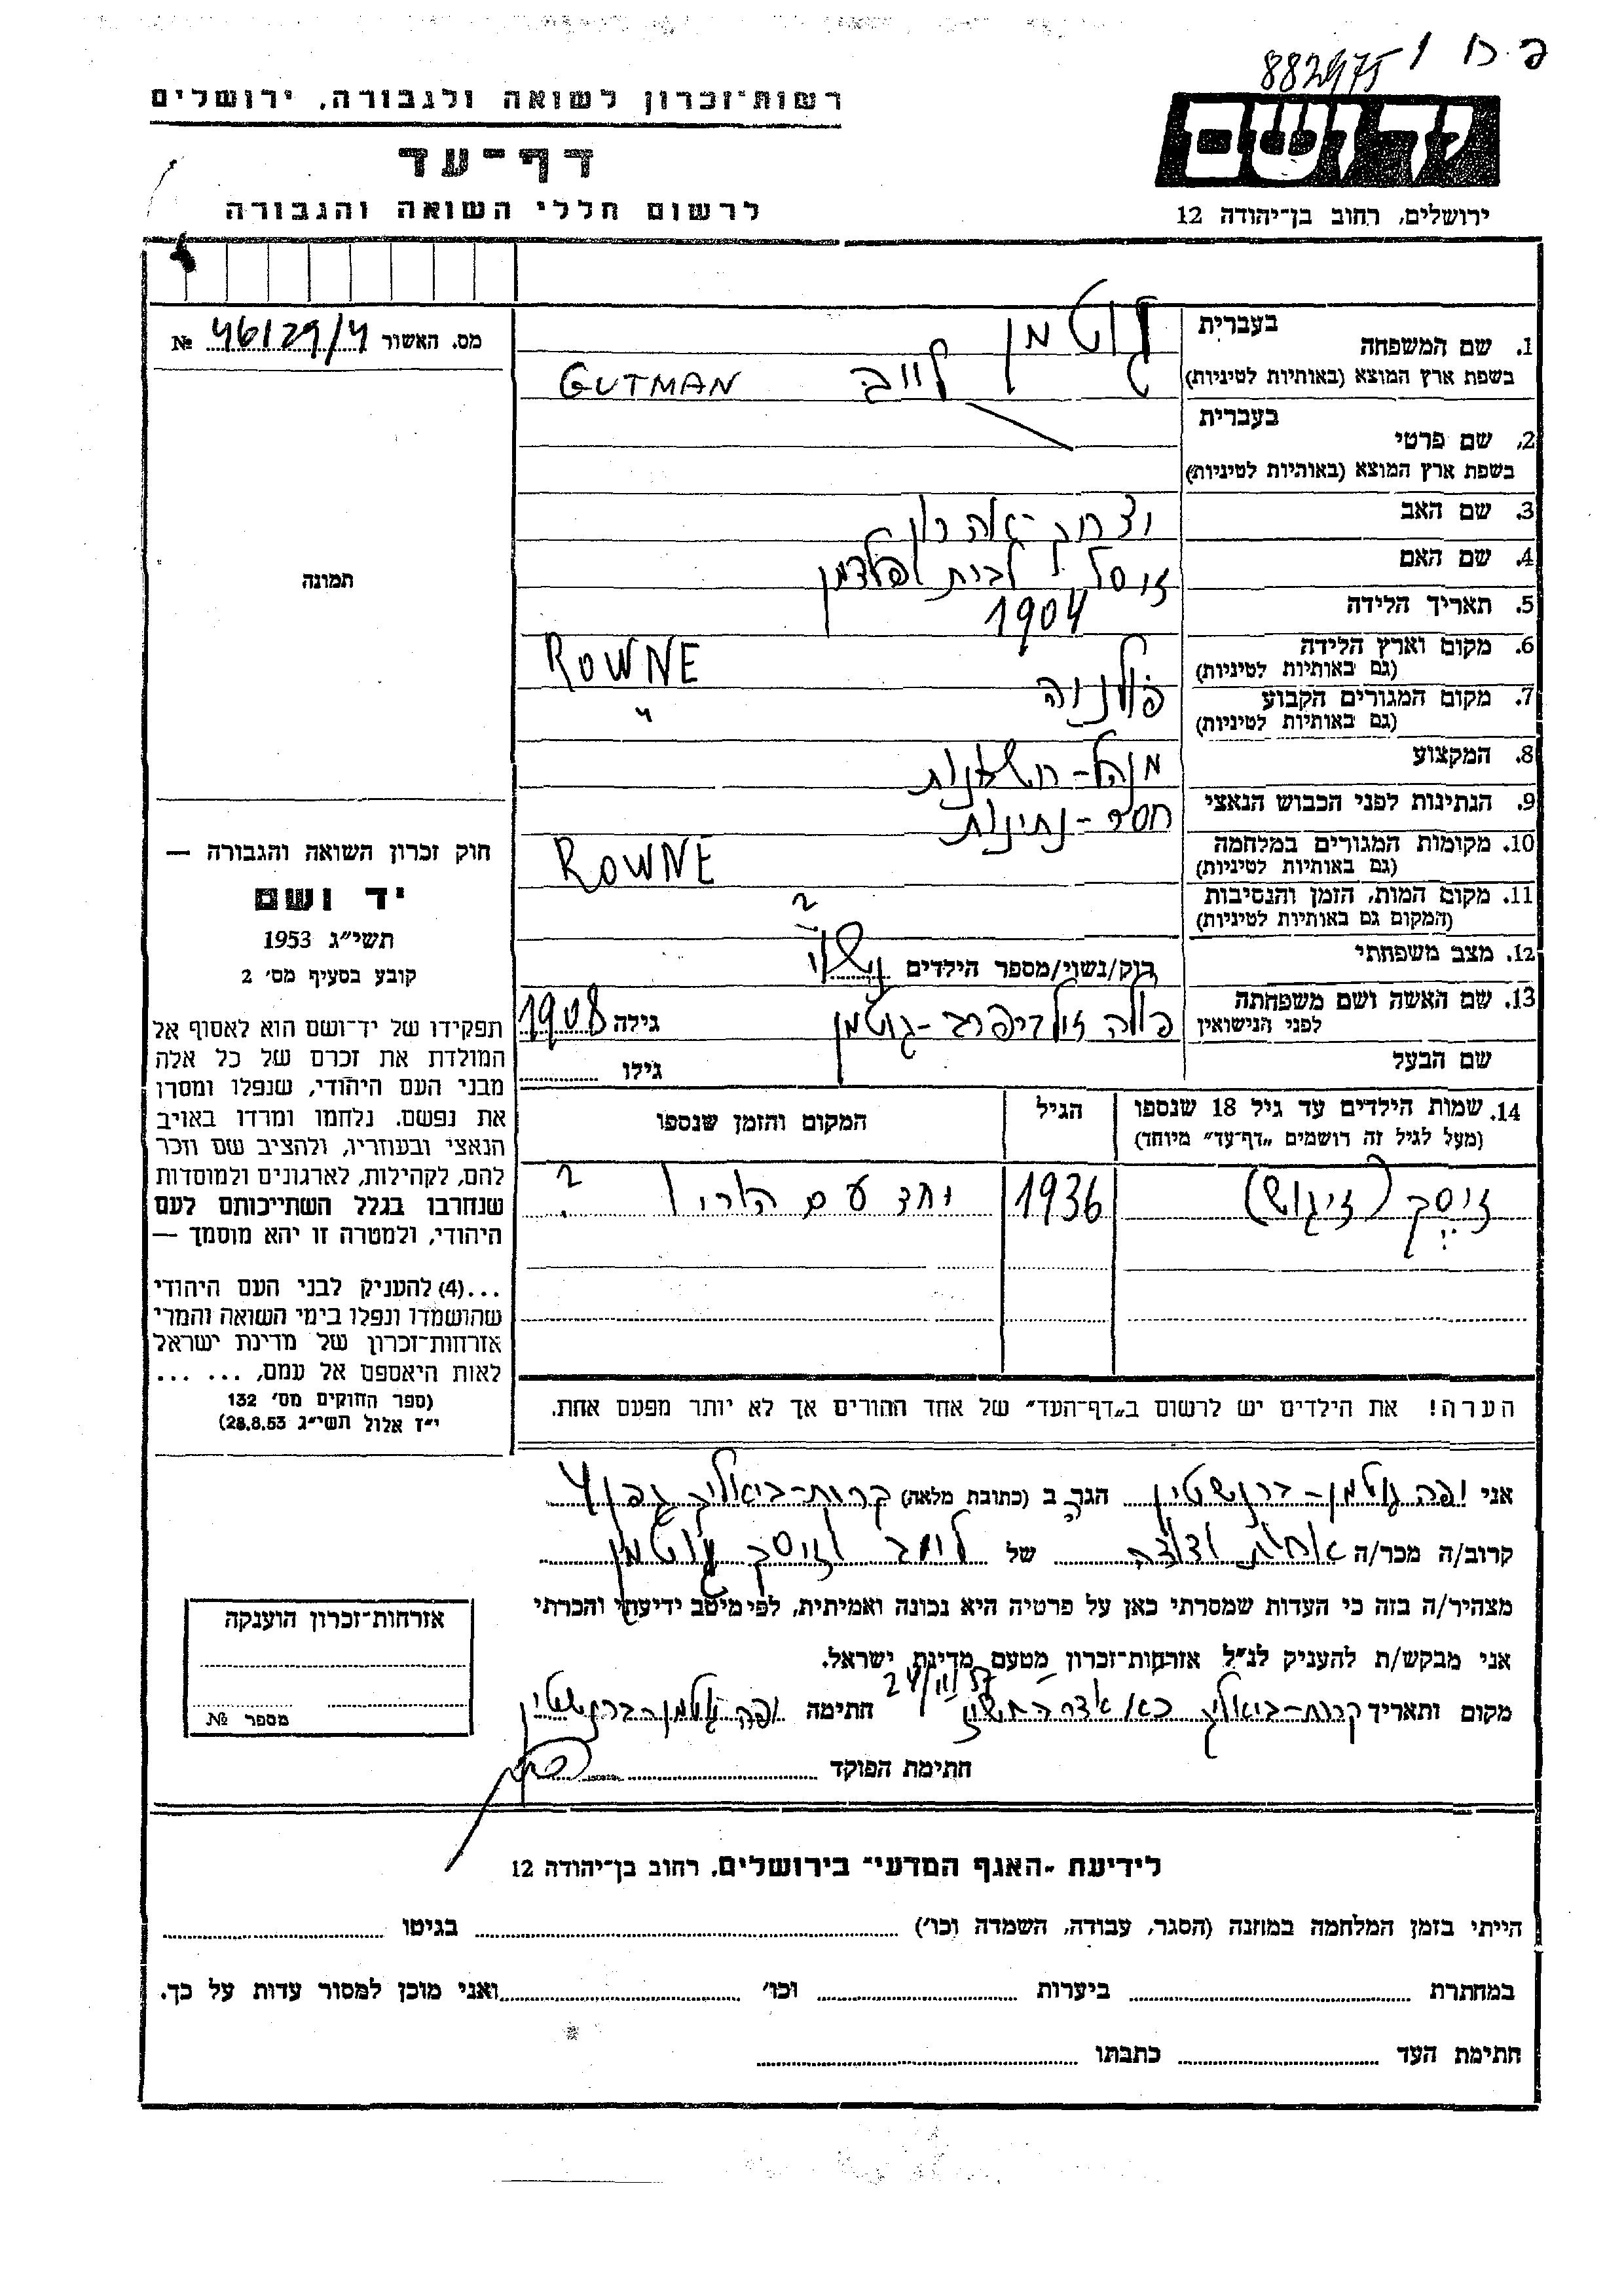 882975
רשות־זכרון לשואה ולגבורה, ירושלים
דף־עד
לרשום חללי השואה והגבורה
ידושם
ירושלים, רחוב בן־יהודה 12
מס. האשור 46129/4 №
תמונה
חוק זכרון השואה והגבורה —
יד ושם
תשי״ג 1953
קובע בסעיף מס׳ 2
תפקידו של יד־ושם הוא לאסוף אל
המולדת את זכרם של כל אלה
מבני העם היהודי, שנפלו ומסרו
את נפשם. נלחמו ומרדו באויב
הנאצי ובעוזריו, ולהציב שם וזכר
להם, לקהילות, לארגונים ולמוסדות
שנחרבו בגלל השתייכותם לעם
היהודי, ולמטרה זו יהא מוסמך —
...(4) להעניק לבני העם היהודי
שהושמדו ונפלו בימי השואה והמרי
אזרחות־זכרון של מדינת ישראל
לאות היאספם אל עמם, ... ...
(ספר החוקים מס׳ 132
י״ז אלול תשי״ג 28.8.53)
1. שם המשפחה בעברית גוטמן לייב
בשפת ארץ המוצא (באותיות לטיניות) GUTMAN
2. שם פרטי בעברית
בשפת ארץ המוצא (באותיות לטיניות)
3. שם האב יצחק-אהרון
4. שם האם זיסל לבית פלדמן
5. תאריך הלידה 1904
6. מקום וארץ הלידה ROWNE
(גם באותיות לטיניות)
7. מקום המגורים הקבוע פולניה "
(גם באותיות לטיניות)
8. המקצוע מנהל-חשבונות
9. הנתינות לפני הכבוש הנאצי חסר-נתינות
10. מקומות המגורים במלחמה ROWNE
(גם באותיות לטיניות)
11. מקום המות, הזמן והנסיבות ?
(המקום גם באותיות לטיניות)
12. מצב משפחתי רוק/נשוי/מספר הילדים נשוי
13. שם האשה ושם משפחתה פולה גולדפרב-גוטמן גילה 1908
לפני הנישואין
שם הבעל גילו
14. שמות הילדים עד גיל 18 שנספו הגיל המקום והזמן שנספו
(מעל לגיל זה רושמים „דף־עד״ מיוחד)
זיסק (זיגוש) 1936 יחד עם הוריו ?
הערה! את הילדים יש לרשום ב„דף־העד״ של אחד ההורים אך לא יותר מפעם אחת.
אני יפה גוטמן-ברנשטיין הגר ב (כתובת מלאה) קרית-ביאליק גפן 4
קרוב/ה מכר/ה אחות ודודה של לייב וזיסק גוטמן
מצהיר/ה בזה כי העדות שמסרתי כאן על פרטיה היא נכונה ואמיתית, לפי מיטב ידיעתי והכרתי
אני מבקש/ת להעניק לנ״ל אזרחות־זכרון מטעם מדינת ישראל.
מקום ותאריך קרית-ביאליק 24/11/57 חתימה יפה גוטמן-ברנשטיין
חתימת הפוקד
אזרחות־זכרון הוענקה
מספר №
לידיעת „האגף המדעי״ בירושלים, רחוב בן־יהודה 12
הייתי בזמן המלחמה במחנה (הסגר, עבודה, השמדה וכו׳) בגיטו
במחתרת ביערות וכו׳ ואני מוכן למסור עדות על כך.
חתימת העד כתבתו